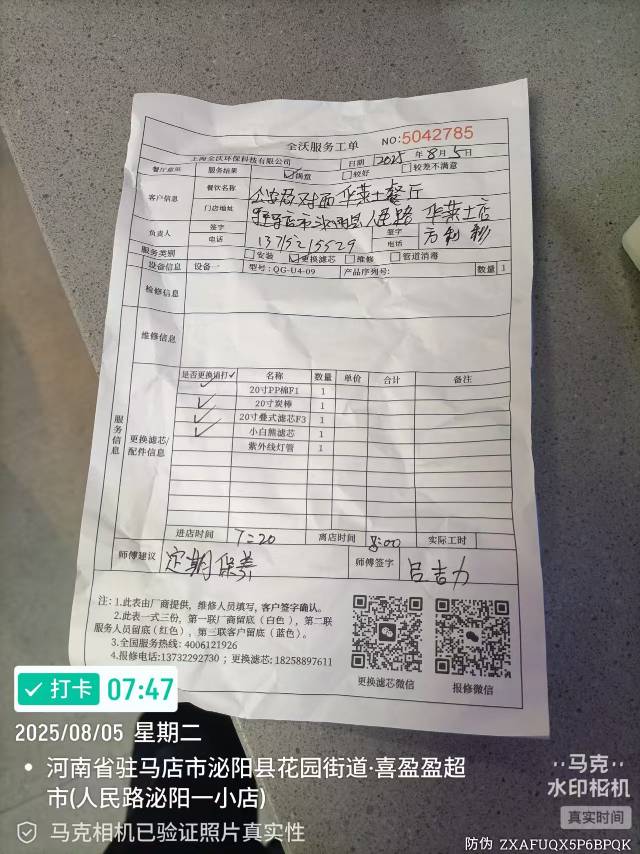 全沃服务工单
NO:5042785
上海全沃环保科技有限公司
日期 2025 年 8 月 5 日
餐厅意见 服务结果 满意 较好 较差不满意
客户信息 餐饮名称 公安局对面 华莱士餐厅
门店地址 驻马店市泌阳县人民路 华莱士店
负责人 签字 电话 13715215529 签字 电话
服务类别 安装 更换滤芯 维修 管道消毒
设备信息 设备一 型号:QG-U4-09 产品序列号: 数量 1
检修信息
维修信息
服务信息
更换滤芯/配件信息
是否更换请打✓ 名称 数量 单价 合计 备注
✓ 20寸PP棉F1 1
✓ 20寸炭棒 1
✓ 20寸叠式滤芯F3 1
✓ 小白熊滤芯 1
紫外线灯管 1
进店时间 7:20 离店时间 8:00 实际工时
师傅建议 定期保养 师傅签字 吕吉力
注: 1.此表由厂商提供, 维修人员填写, 客户签字确认。
2.此表一式三份, 第一联厂商留底(白色), 第二联
服务人员留底(红色), 第三联客户留底(蓝色)。
3.全国服务热线: 4006121926
4.报修电话:13732292730 ; 更换滤芯: 18258897611
更换滤芯微信
报修微信
打卡 07:47
2025/08/05 星期二
河南省驻马店市泌阳县花园街道·喜盈盈超
市(人民路泌阳一小店)
马克相机已验证照片真实性
马克
水印相机
真实时间
防伪 ZXAFUQX5P6BPQK